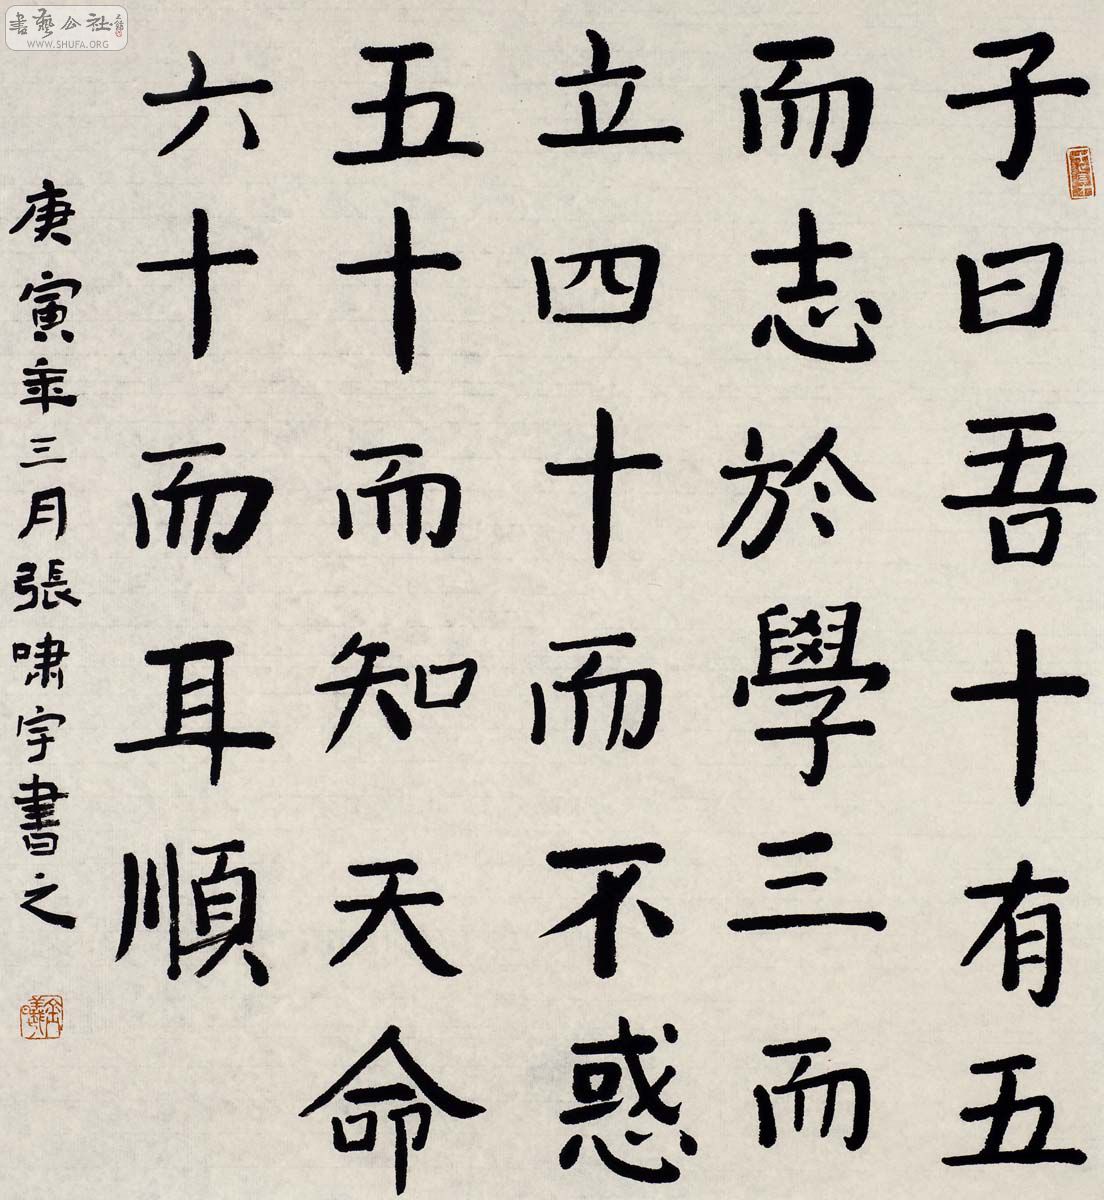 子曰吾十有五
而志於學三而
立四十而不惑
五十而知天命
六十而耳順
庚寅年三月張嘯宇書之
書藝公社
WWW.SHUFA.ORG